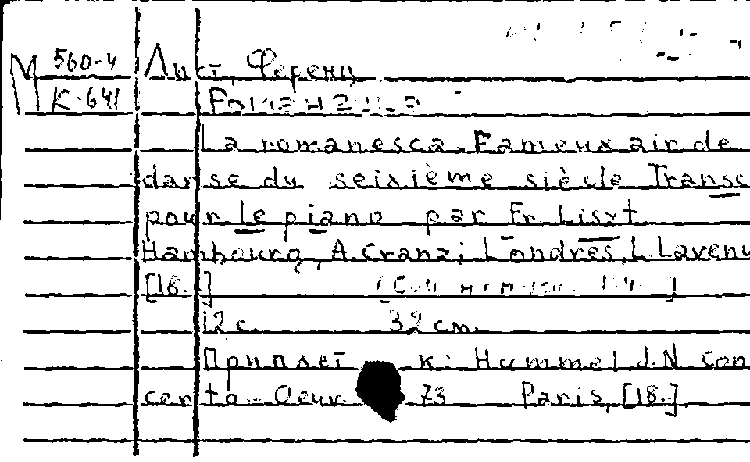 М 560-4 Лист, Ференц
К-641
La romanesca. Fameux air de
danse du seixième siècle Transc
pour le piano par Fr. Liszt
Hambourg, A. Cranz; Londres, L. Lavenu
[18..]
12 с. 32 cm.
Приплет к: Hummel J.N Con
certo Oeuv. 73 Paris, [18.]